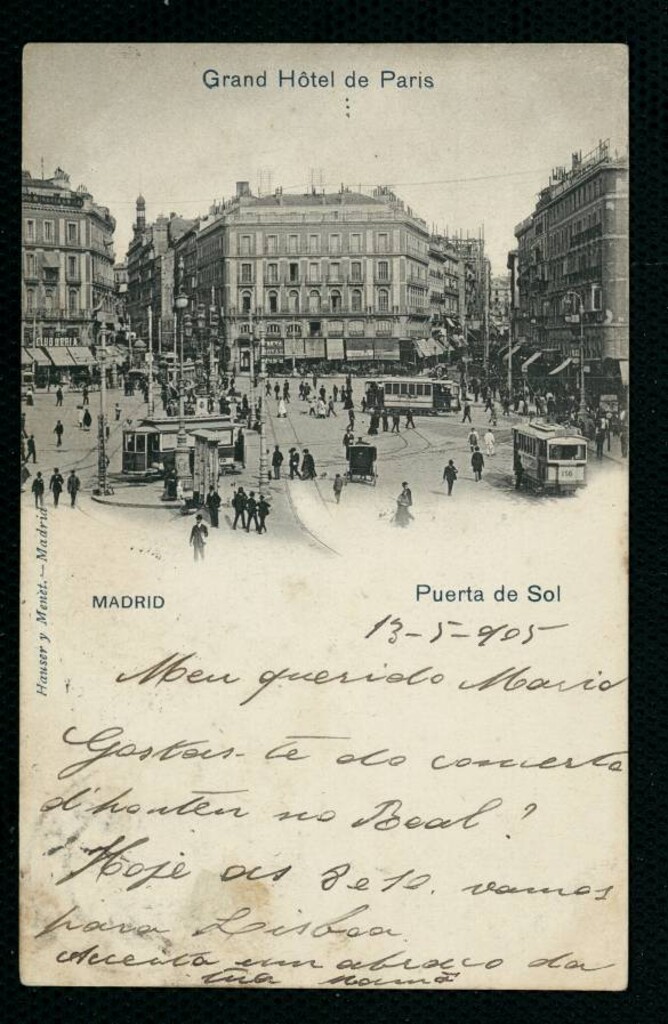 Grand Hôtel de Paris
CLUB
150
MADRID
Puerta de Sol
Hauser y Menet.—Madrid
13-5-905
Meu querido Mario
Gostas-te do concerto
d'hontem no Real?
Hoje as 8 e 10. vamos
para Lisboa
Aceita um abraço da
tua mamã